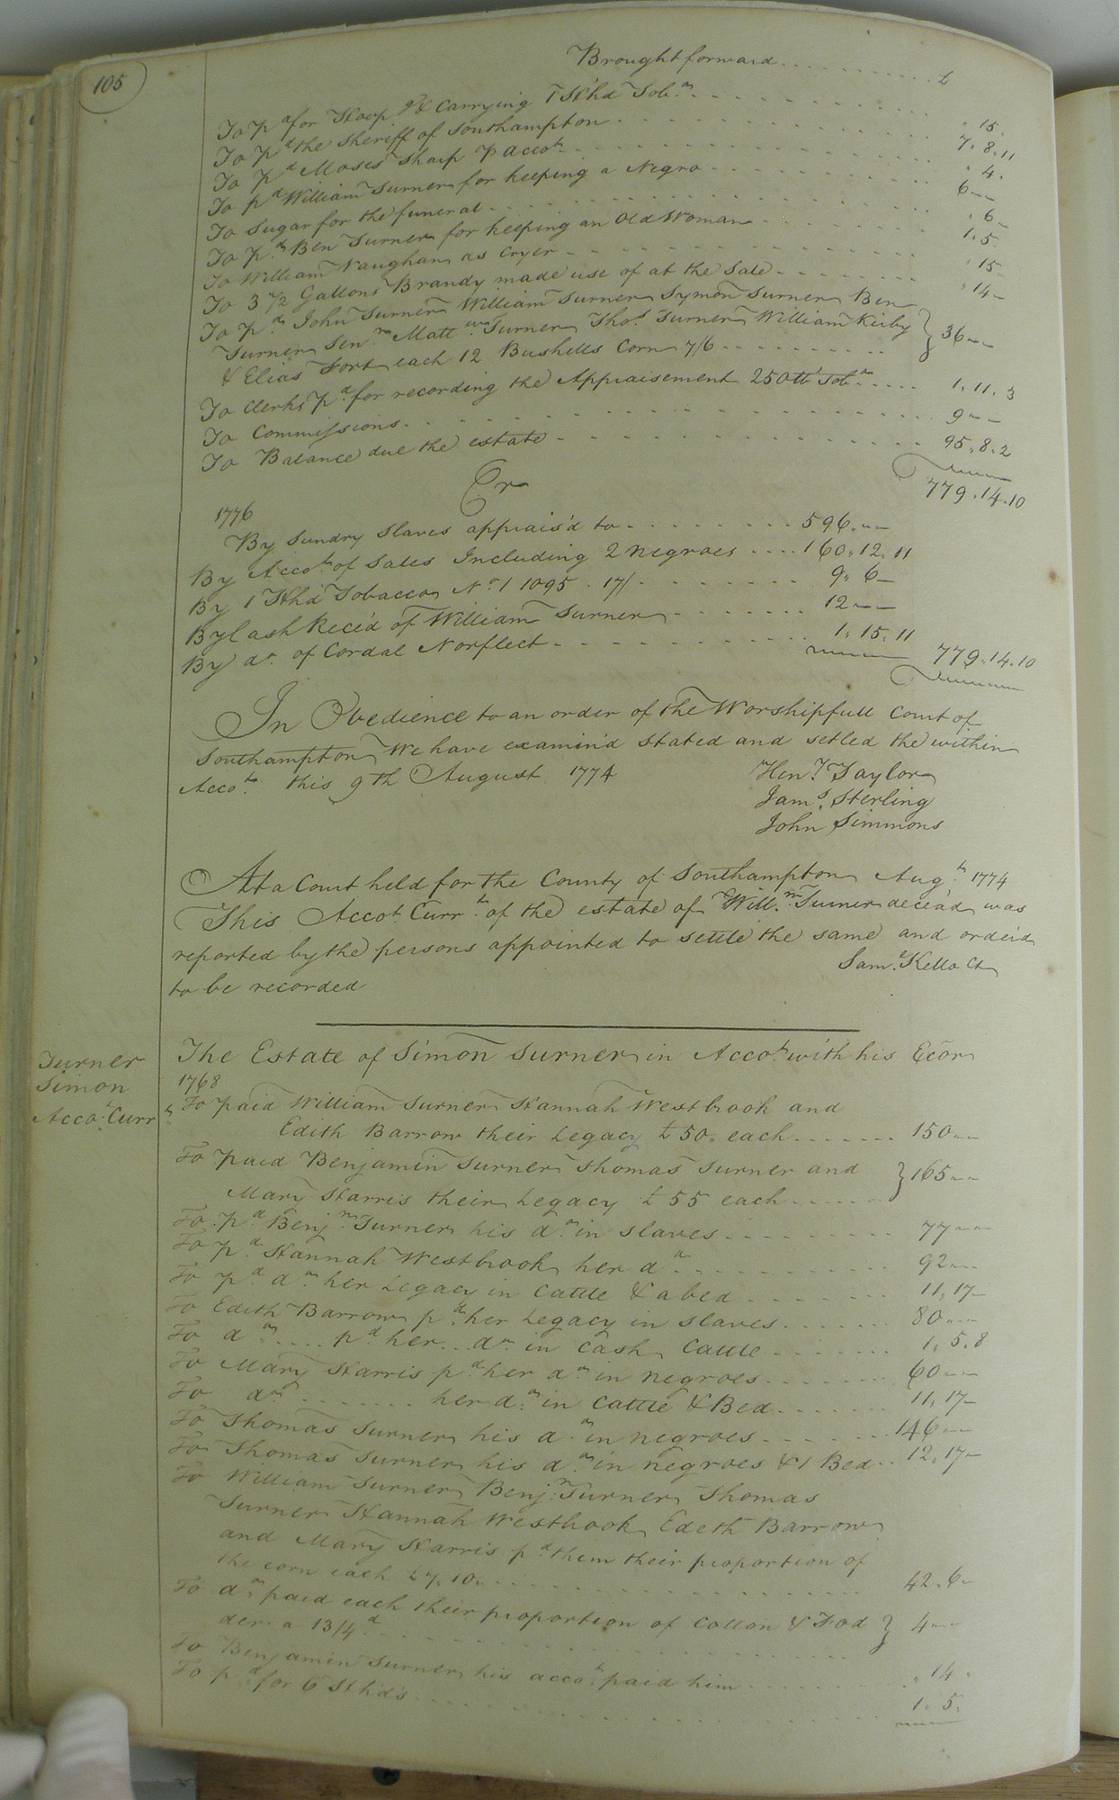 105
Brought forward £
To pd for Hoop gs & Carrying 1 Hhd Tobo „ 15.
To pd the Sheriff of Southampton 7. 8. 11
To pd Moses Sharp p Accot „ 4.
To pd William Turner for keeping a Negro 6 --
To Sugar for the funeral „ 6 -
To pd Ben Turner for keeping an Old Woman 1. 5.
To William Vaughan as Cryer „ 15 -
To 3 1/2 Gallons Brandy made use of at the Sale „ 14 -
To pd John Turner William Turner Symon Turner Ben
Turner Senr Matthw Turner Thos Turner William Kirby } 36 --
& Elias Fort each 12 Bushells Corn 7/6
To Clerks pd for recording the Appraisement 250 lb Tobo 1. 11. 3
To Commissions 9 --
To Balance due the estate 95. 8. 2
779. 14. 10
Cr
1776
By Sundry Slaves apprais'd to 596. --
By Accot of Sales Including 2 negroes 160. 12. 11
By 1 Hhd Tobacco No 1 1095. 17/ 9. 6 -
By Cash Recid of William Turner 12 --
By do of Cordal Norflect 1. 15. 11 779. 14. 10
In Obedience to an order of the Worshipfull Court of
Southampton We have examin'd Stated and setled the within
Accot this 9th August 1774 Heny Taylor
Jams Sterling
John Simmons
At a Court held for the County of Southampton Augt 1774
This Accot Currt of the estate of Willm Turner deceas'd was
reported by the persons appointed to settle the same and order'd
to be recorded Saml Kello Ct
Turner
Simon
Accot Curr
The Estate of Simon Turner in Accot with his Ecor
1768
To paid William Turner Hannah Westbrook and
Edith Barrow their Legacy £50. each 150 --
To paid Benjamin Turner Thomas Turner and } 165 --
Mary Harris their Legacy £55 each
To pd Benjn Turner his do in slaves 77 --
To pd Hannah Westbrook her do 92 --
To pd do her Legacy in Cattle & a bed 11. 17 -
To Edith Barrow pd her Legacy in slaves 80 --
To do pd her do in Cash, Cattle 1. 5. 8
To Mary Harris pd her do in negroes 60 --
To do her do in Cattle & Bed 11. 17 -
To Thomas Turner his do in negroes 146 --
To Thomas Turner his do in negroes & 1 Bed 12. 17 -
To William Turner Benjn Turner Thomas
Turner Hannah Westbrook Edeth Barrow
and Mary Harris pd them their proportion of
the corn each £7. 10. 42. 6 -
To do paid each their proportion of Cotton & Fod } 4 --
der a 13/4d
To Benjamin Turner his accot paid him „ 14 .
To pd for 6 Hhds 1. 5.